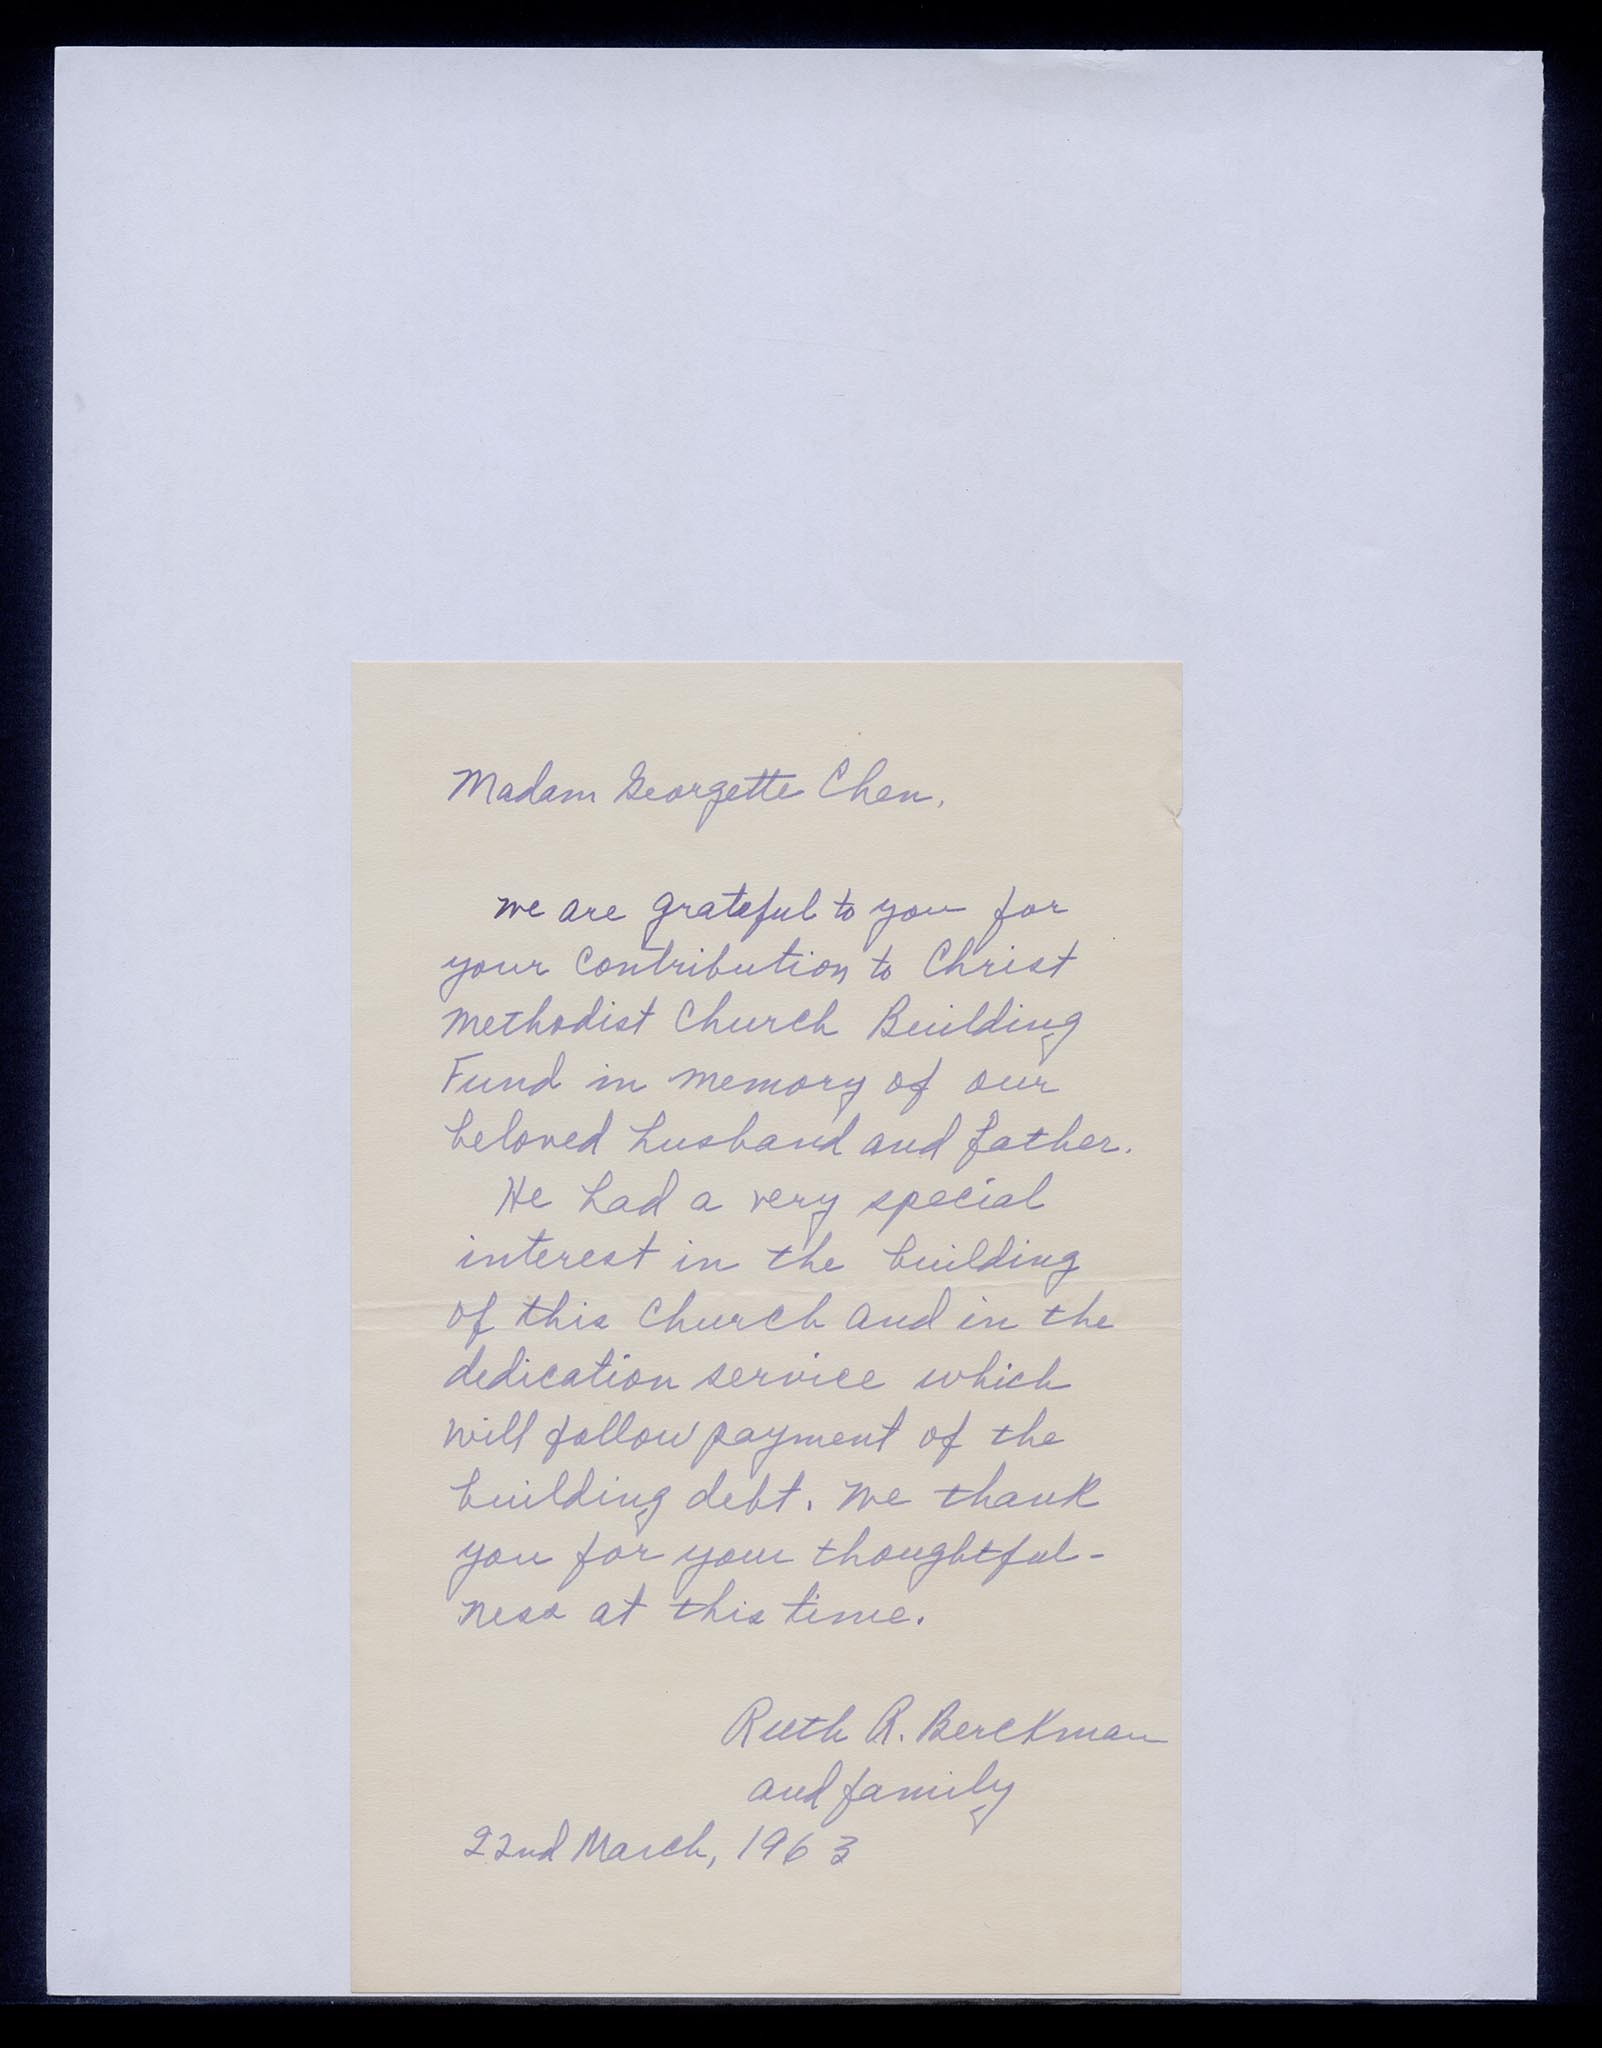 Madam Georgette Chen,
We are grateful to you for
your contribution to Christ
Methodist Church Building
Fund in memory of our
beloved husband and father.
He had a very special
interest in the building
of this Church and in the
dedication service which
will follow payment of the
building debt. We thank
you for your thoughtful-
ness at this time.
Ruth R. Berckman
and family
22nd March, 1963